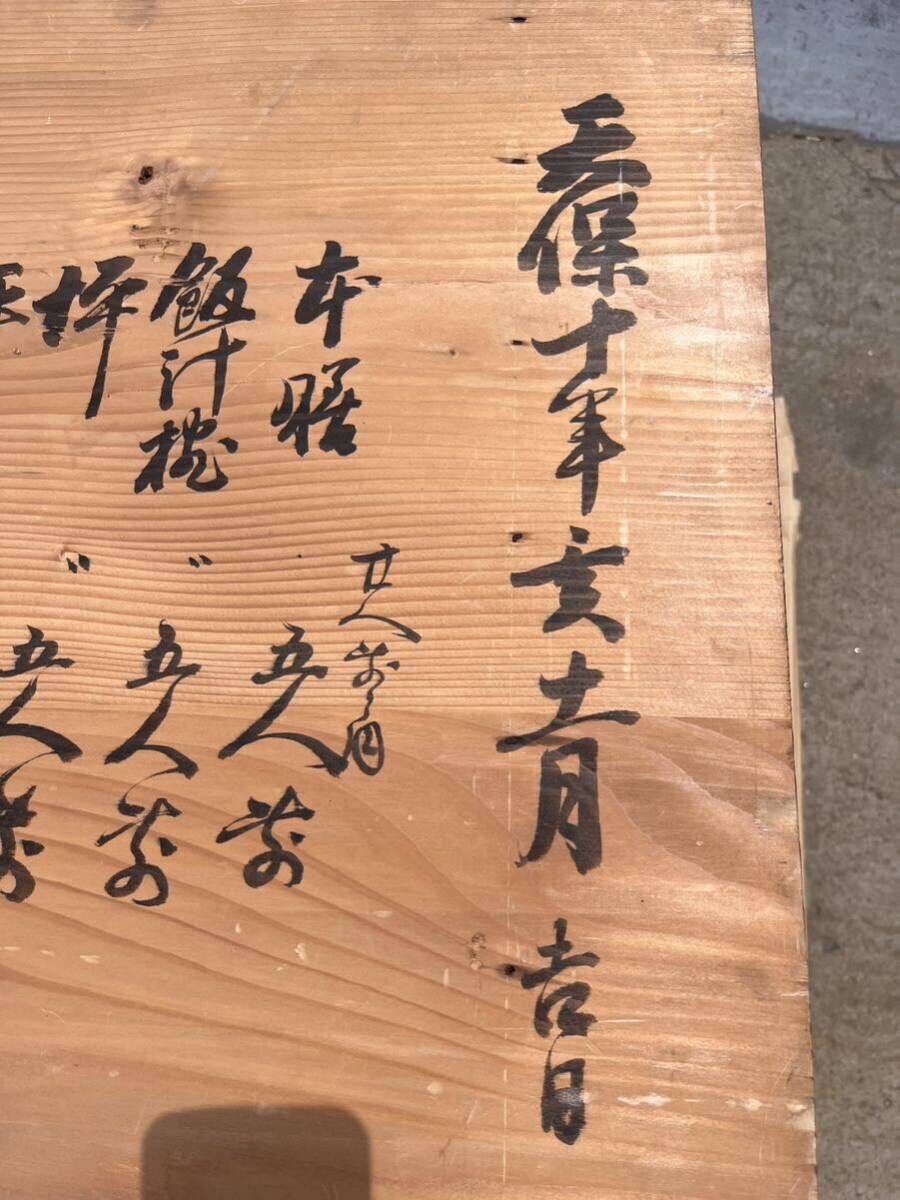 天保十年亥十一月 吉日
廿人前之内
本膳 五人前
飯汁椀 〃 五人前
坪 〃 五人前